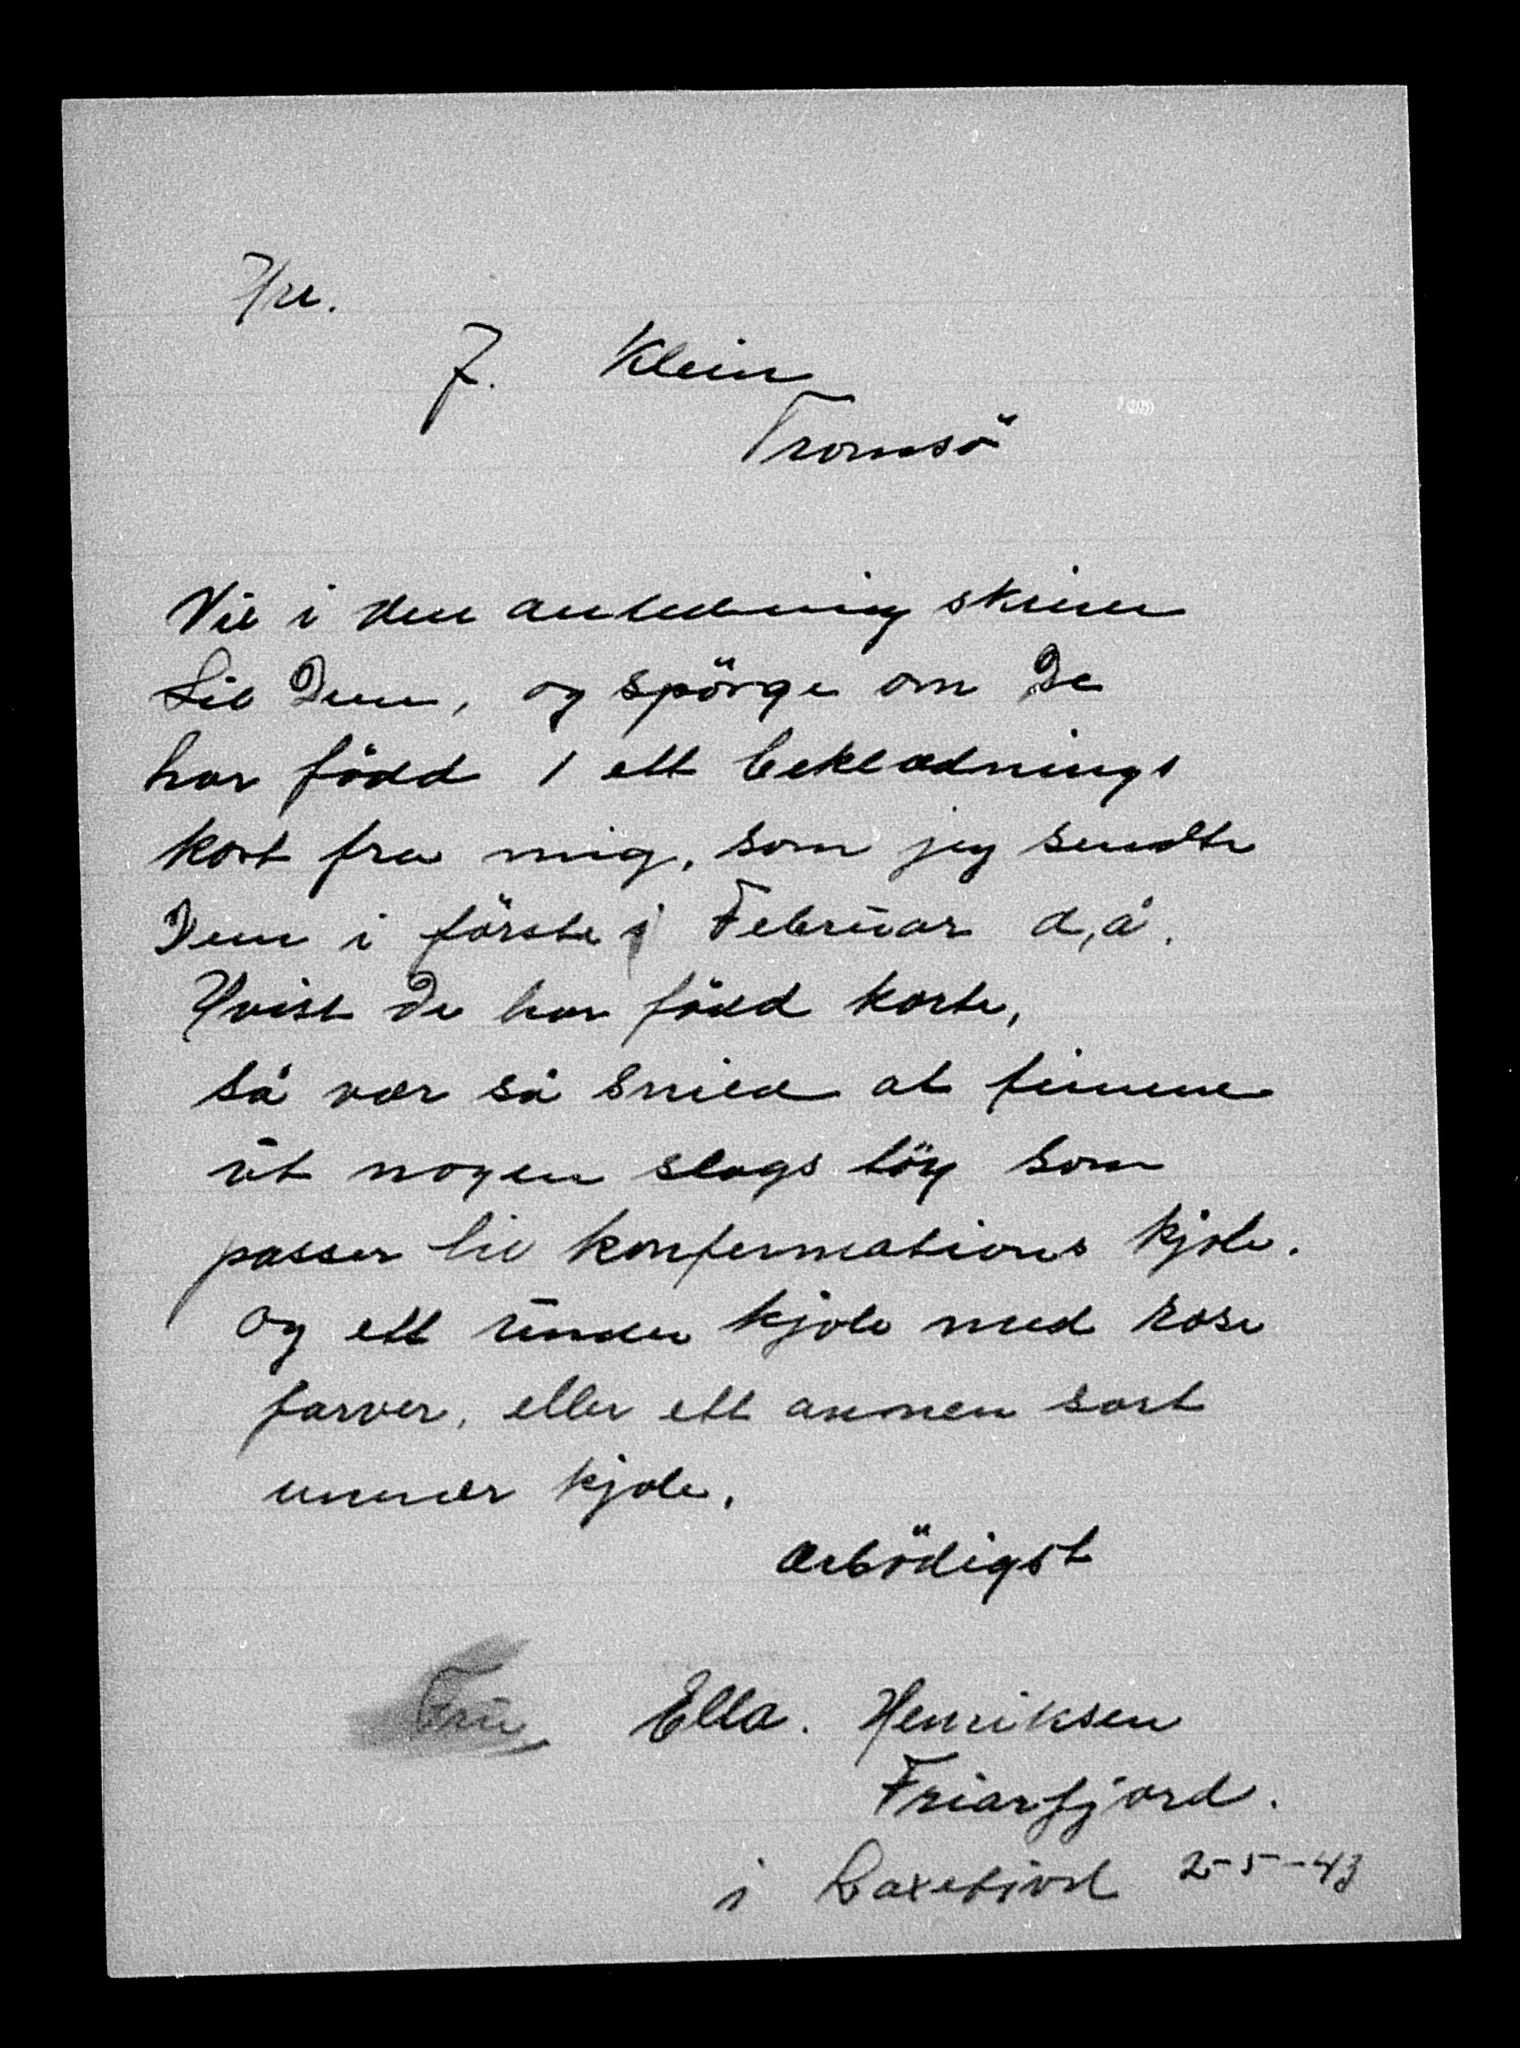 Hr.
J. Klein
Tromsö
Vil i den anledning skriver
til Dem, og spörge om De
har född 1 ett beklædnings
kort fra mig, som jeg sendte
Dem i förste i Februar d,å.
Hvist De har född korte,
så vær så Snild at finne
út nogen slags töy som
passer til konfermations kjole.
og ett únder kjole med rose
farver, eller ett annen sort
unnær kjole.
Ærbödigst
Frú Ella. Henriksen
Friarfjord.
i Laxefjord 2-5-43